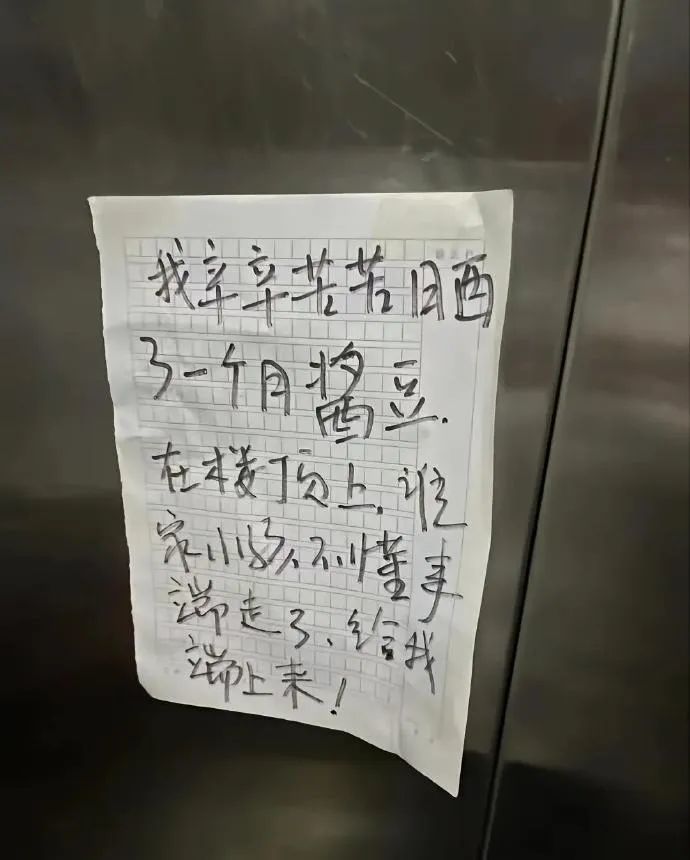 我辛辛苦苦日晒
了一个月酱豆.
在楼顶上.谁
家小孩不懂事
端走了、给我
端上来!